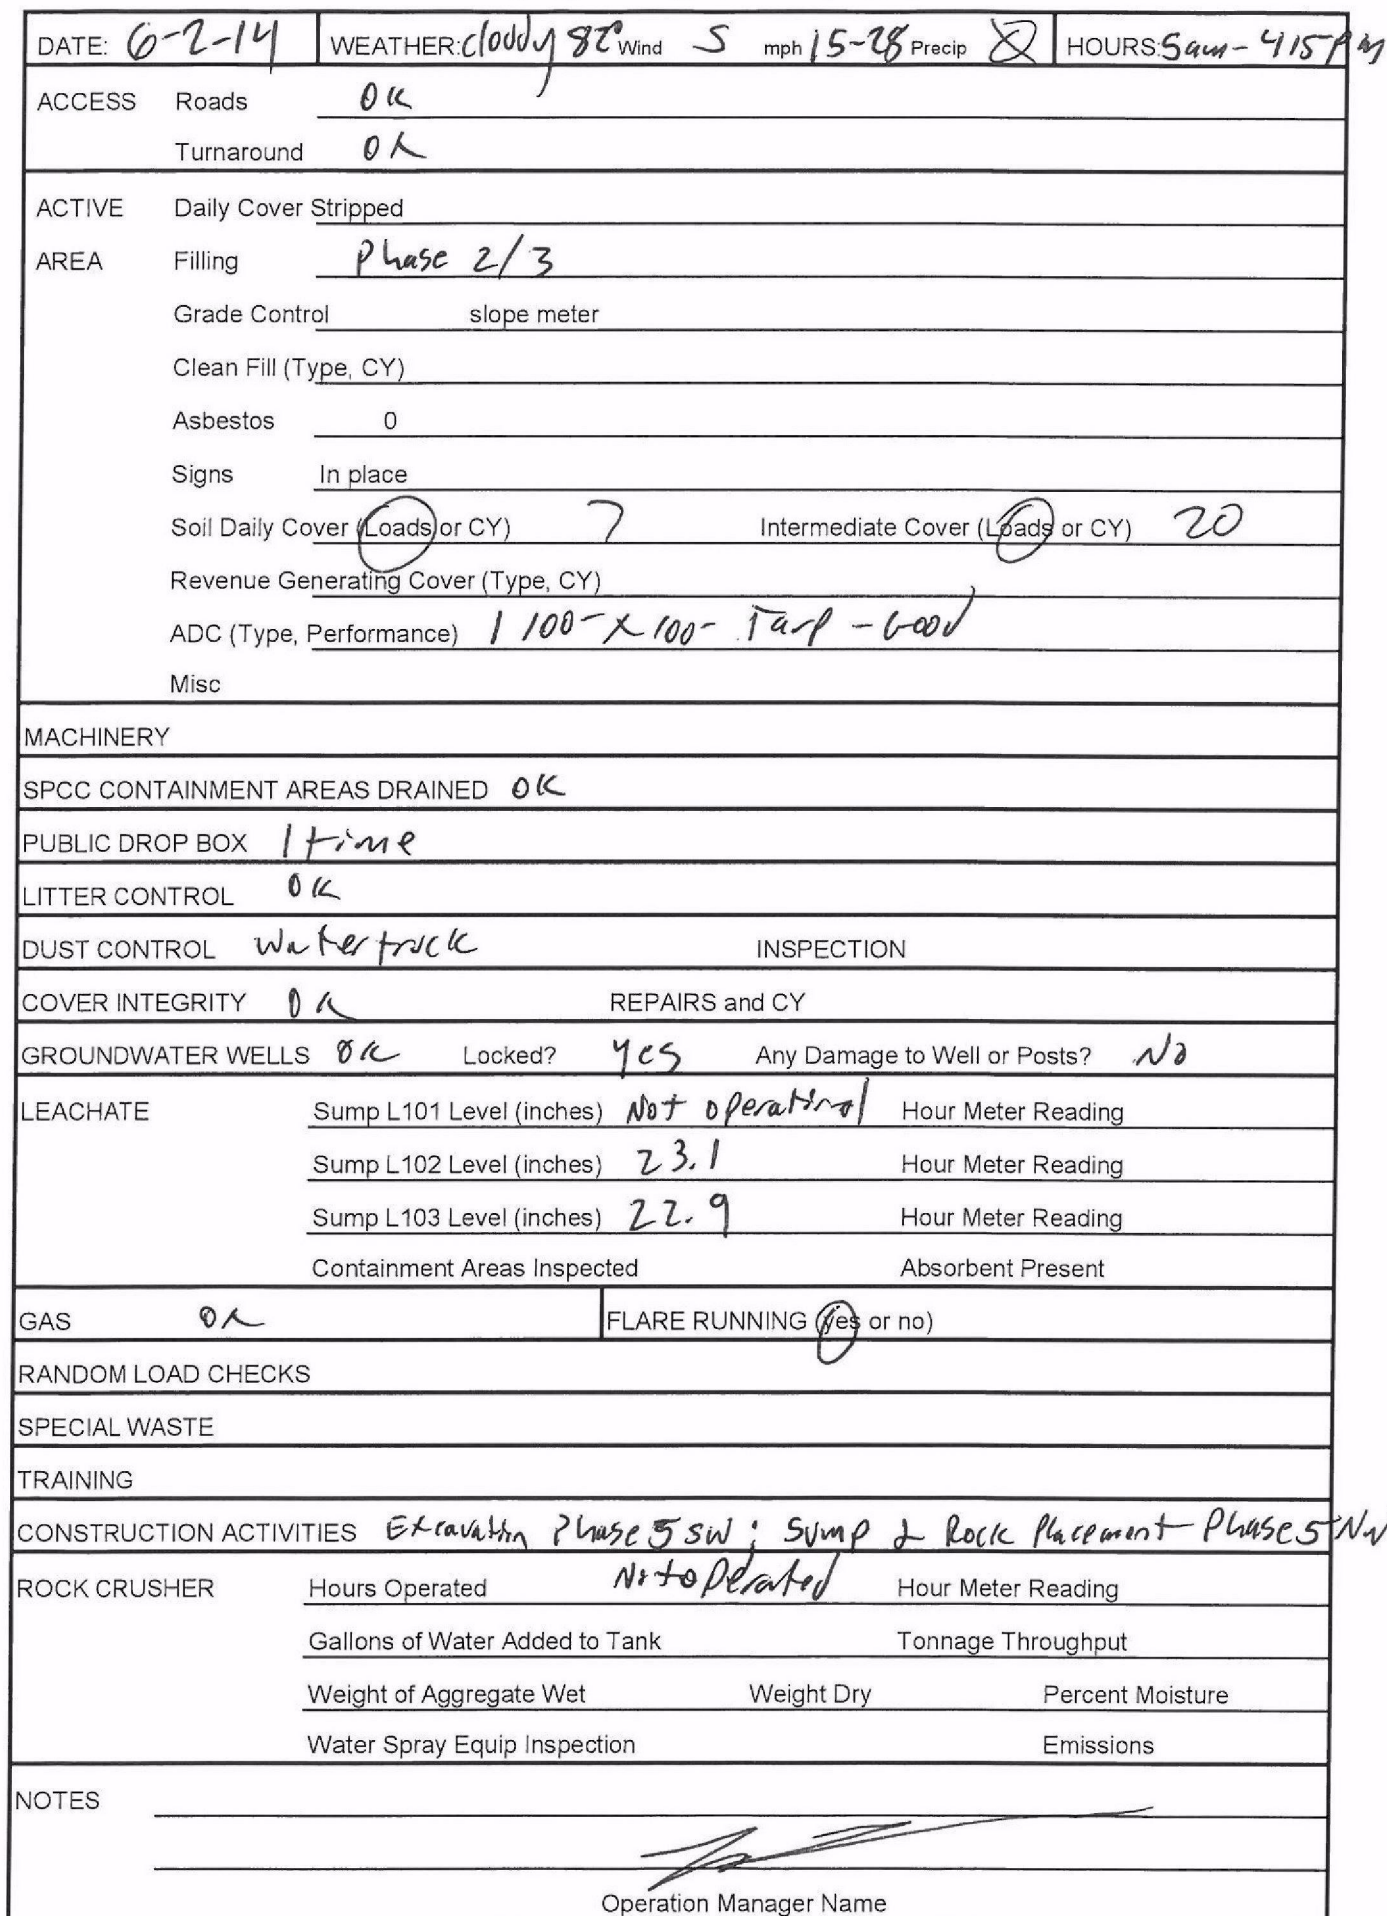 DATE: 6-2-14 WEATHER: cloudy 82° Wind S mph 15-28 Precip HOURS: 5am - 415pm
ACCESS Roads OK
Turnaround OK
ACTIVE Daily Cover Stripped
AREA Filling Phase 2/3
Grade Control slope meter
Clean Fill (Type, CY)
Asbestos 0
Signs In place
Soil Daily Cover (Loads or CY) 7 Intermediate Cover (Loads or CY) 20
Revenue Generating Cover (Type, CY)
ADC (Type, Performance) 1 100- x 100- Tarp - Good
Misc
MACHINERY
SPCC CONTAINMENT AREAS DRAINED OK
PUBLIC DROP BOX 1 time
LITTER CONTROL OK
DUST CONTROL Water truck INSPECTION
COVER INTEGRITY OK REPAIRS and CY
GROUNDWATER WELLS OK Locked? yes Any Damage to Well or Posts? No
LEACHATE Sump L101 Level (inches) Not operational Hour Meter Reading
Sump L102 Level (inches) 23.1 Hour Meter Reading
Sump L103 Level (inches) 22.9 Hour Meter Reading
Containment Areas Inspected Absorbent Present
GAS OK FLARE RUNNING (yes or no)
RANDOM LOAD CHECKS
SPECIAL WASTE
TRAINING
CONSTRUCTION ACTIVITIES Excavation Phase 5 SW; Sump & Rock Placement Phase 5 NW
ROCK CRUSHER Hours Operated Not operated Hour Meter Reading
Gallons of Water Added to Tank Tonnage Throughput
Weight of Aggregate Wet Weight Dry Percent Moisture
Water Spray Equip Inspection Emissions
NOTES
Operation Manager Name